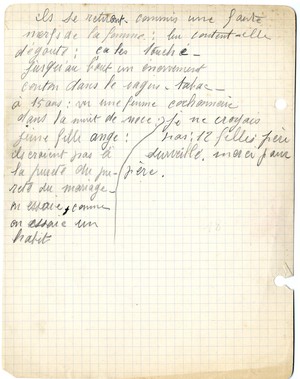 ils se retirent commis une faute
nerfs de la femme : un content-elle
dégoûte : ça les touche -
jusqu'au bout un énervement
contin dans le wagon - tabac -
à 15 ans : vu une femme
dans la nuit de noce : je ne croyais
jeune fille ange : pas, 12 filles, père
ne croient pas à surveille, mercer pour
la pureté du père.
reté du mariage -
on essaie, comme
on essaie un
habit